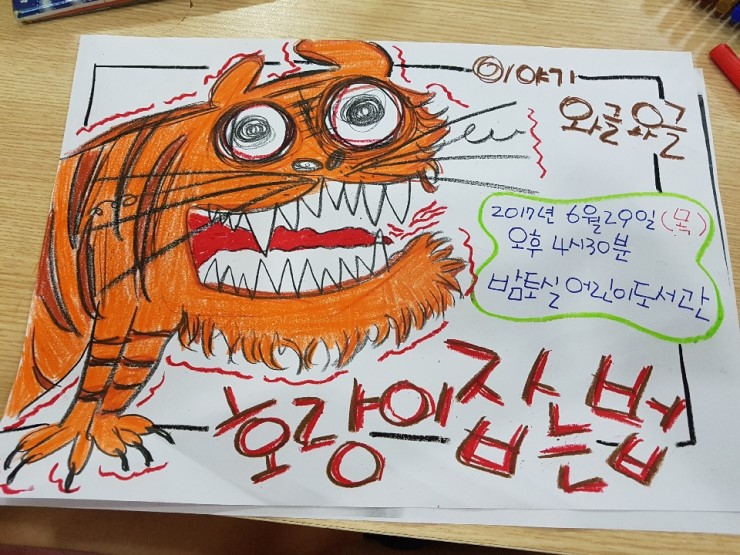 이야기
와글와글
2017년 6월 29일(목)
오후 4시30분
밤토실 어린이도서관
호랑이 잡는 법